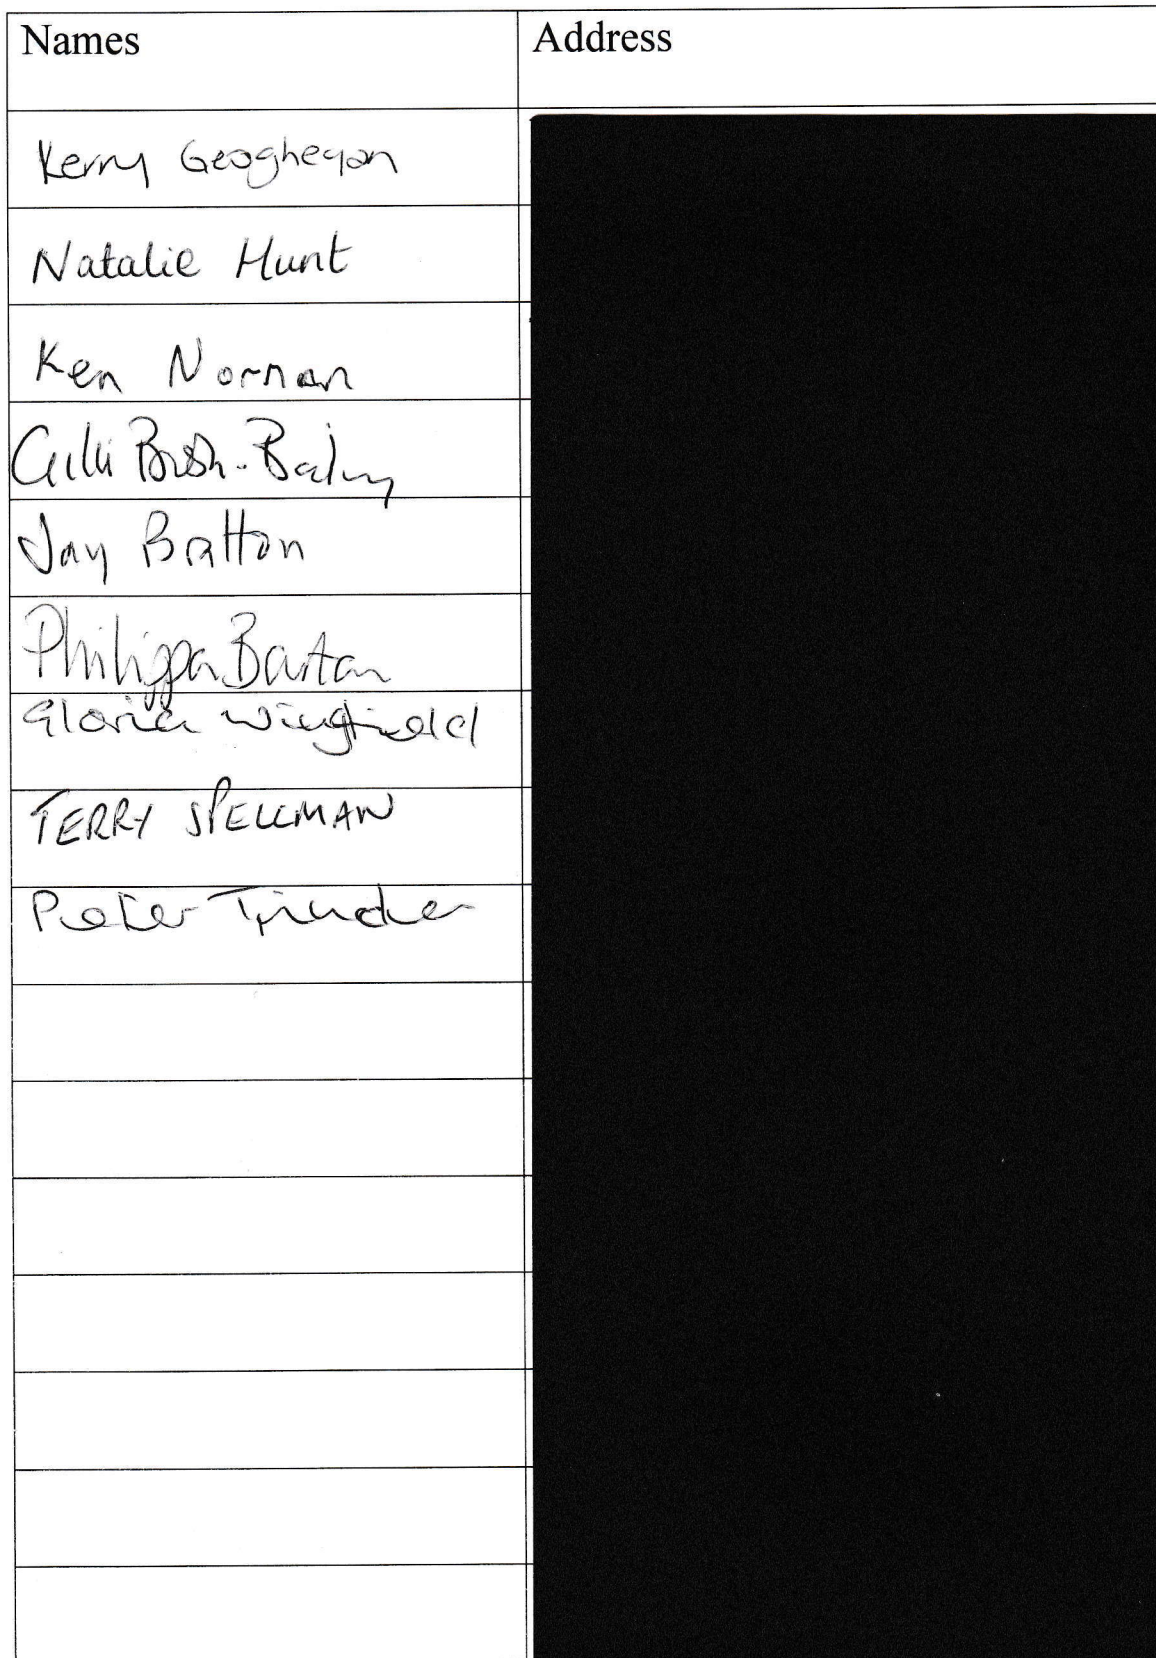 Names
Address
Kerry Geoghegan
Natalie Hunt
Ken Norman
Gilli Bush-Bailey
Jay Bratton
Philippa Barton
Gloria Wingfield
TERRY SPELLMAN
Peter